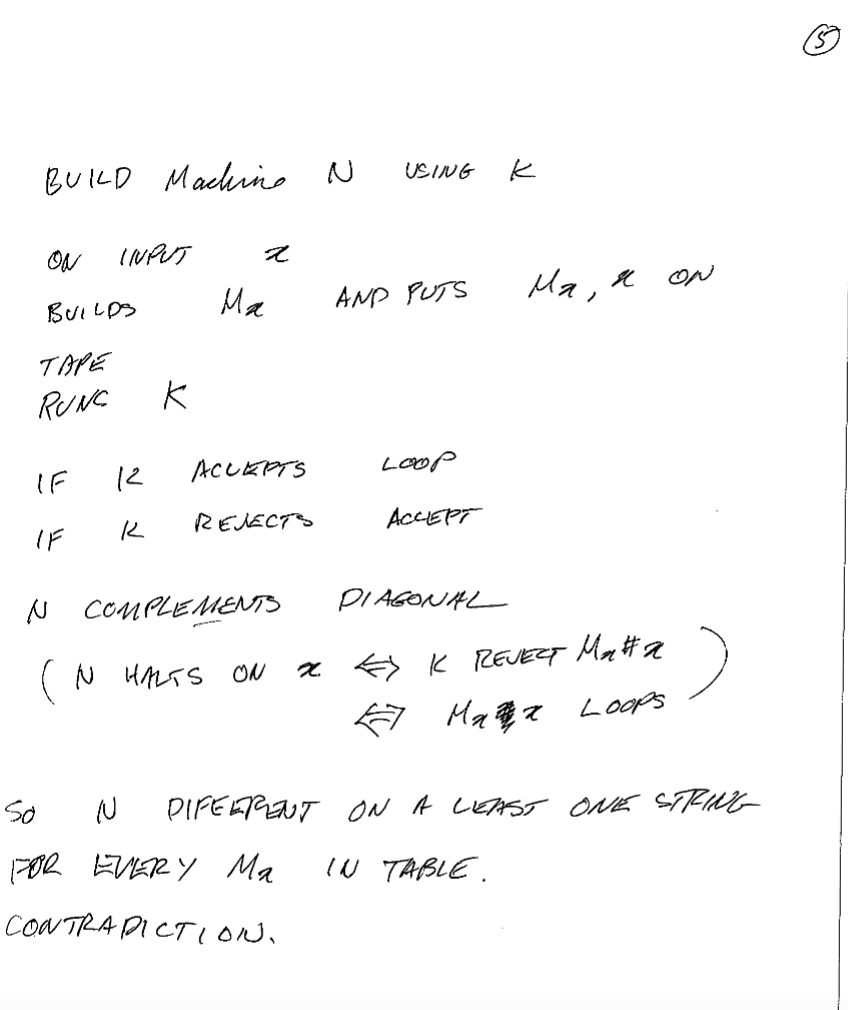 5
BUILD Machine N USING K
ON INPUT x
BUILDS Mx AND PUTS Mx, x ON
TAPE
RUNS K
IF K ACCEPTS LOOP
IF K REJECTS ACCEPT
N COMPLEMENTS DIAGONAL
( N HALTS ON x ⇔ K REJECT Mx#x )
⇔ Mx x LOOPS
SO N DIFEERENT ON A LEAST ONE STRING
FOR EVERY Mx IN TABLE.
CONTRADICTION.